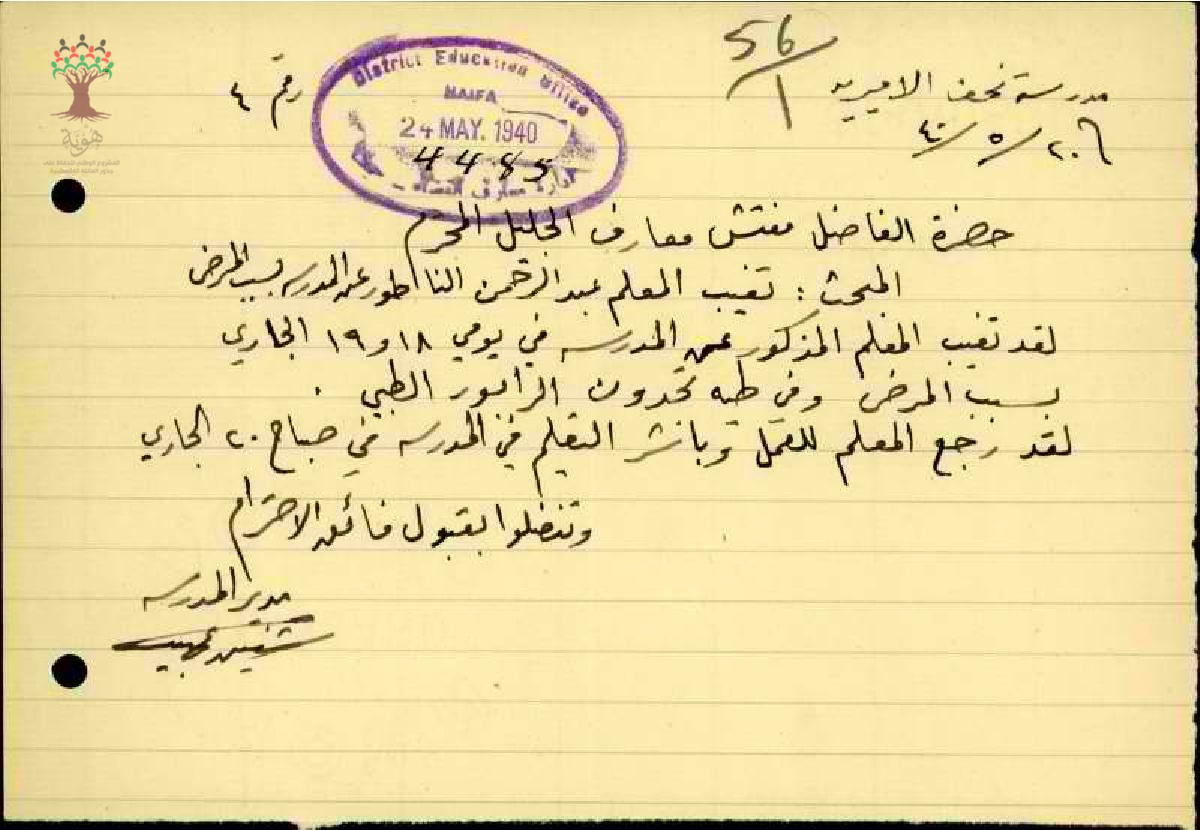 56/1
مدرسة نحف الاميريه
٢٠/٥/٤٠
رقم ٤
District Education Office
HAIFA
24 MAY. 1940
4485
ادارة معارف القضاء
هُويّة
المشروع الوطني للحفاظ على
جذور العائلة الفلسطينية
حضرة الفاضل مفتش معارف الجليل المحترم
المبحث : تغيب المعلم عبد الرحمن الناطور عن المدرسه بسبب المرض
لقد تغيب المعلم المذكور عن المدرسه في يومي ١٨ و ١٩ الجاري
بسبب المرض وفي طيه تجدون الرابور الطبي .
لقد رجع المعلم للعمل وباشر التعليم في المدرسه في صباح ٢٠ الجاري
وتفضلوا بقبول فائق الاحترام
مدير المدرسه